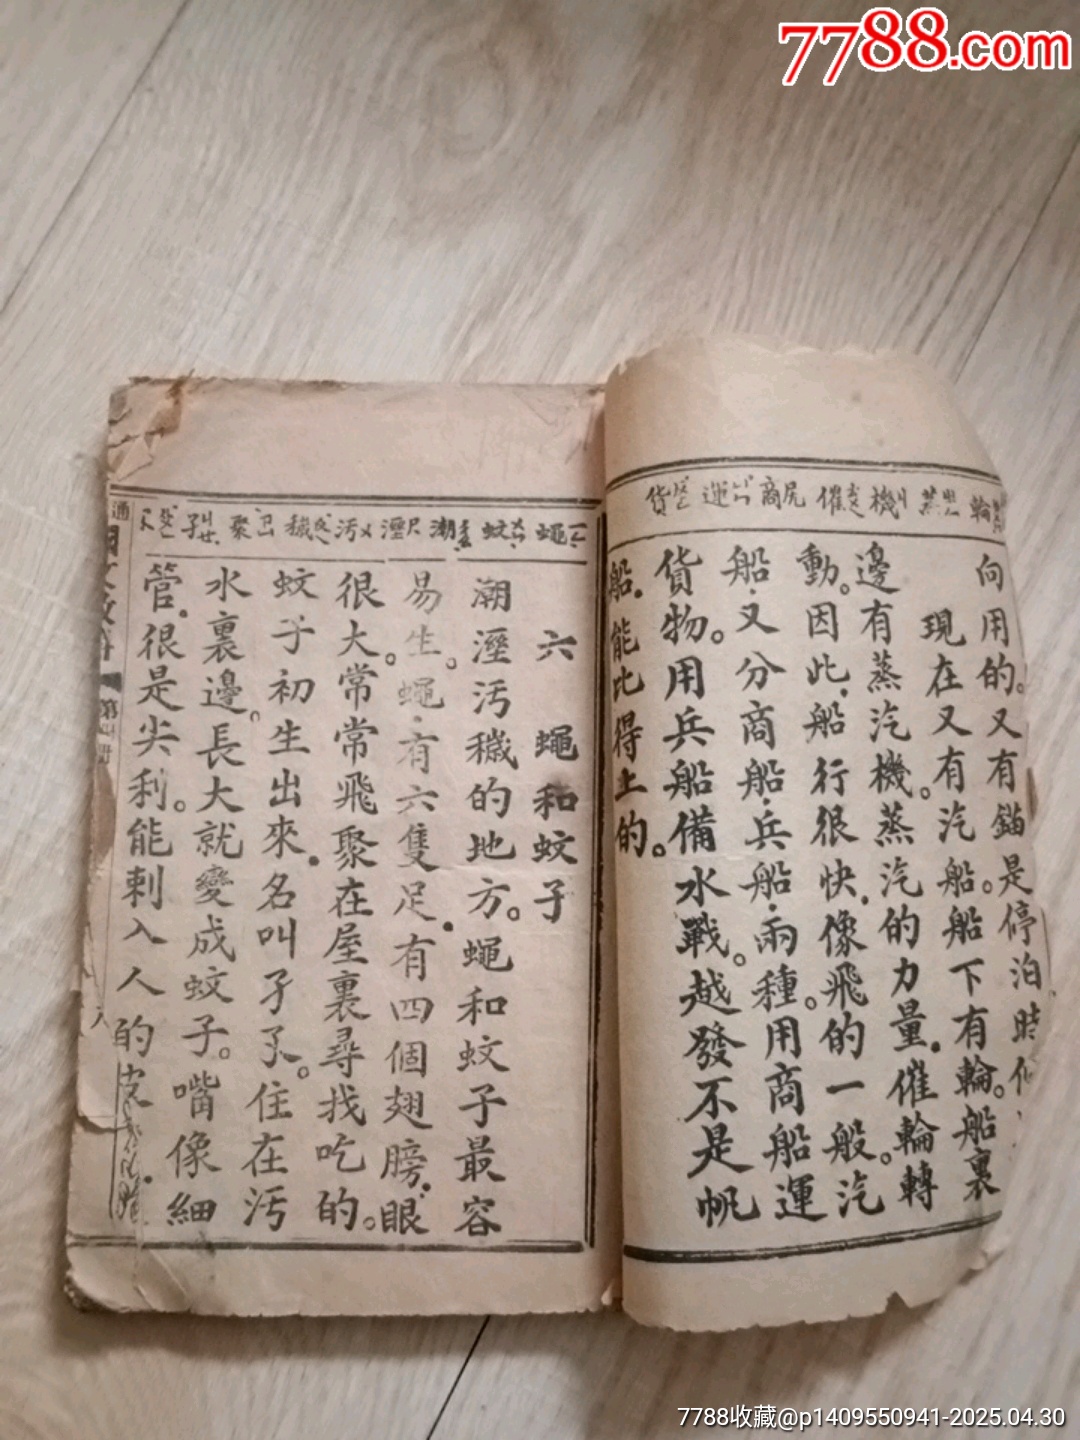 7788.com
輪 蒸 機 催 商 運 貨
向用的。又有錨是停泊時
現在又有汽船。船下有輪。船裏
邊有蒸汽機。蒸汽的力量。催輪轉
動。因此船行很快。像飛的一般。汽
船又分商船兵船兩種。用商船運
貨物。用兵船備水戰。越發不是帆
船能比得上的。
蠅 蚊 潮 溼 污 穢 聚 孑
六 蠅和蚊子
潮溼污穢的地方。蠅和蚊子最容
易生。蠅有六隻足。有四個翅膀。眼
很大。常常飛聚在屋裏尋找吃的。
蚊子初生出來。名叫孑孓。住在污
水裏邊。長大就變成蚊子。嘴像細
管。很是尖利。能刺入人的
第四冊
八
7788收藏@p1409550941-2025.04.30